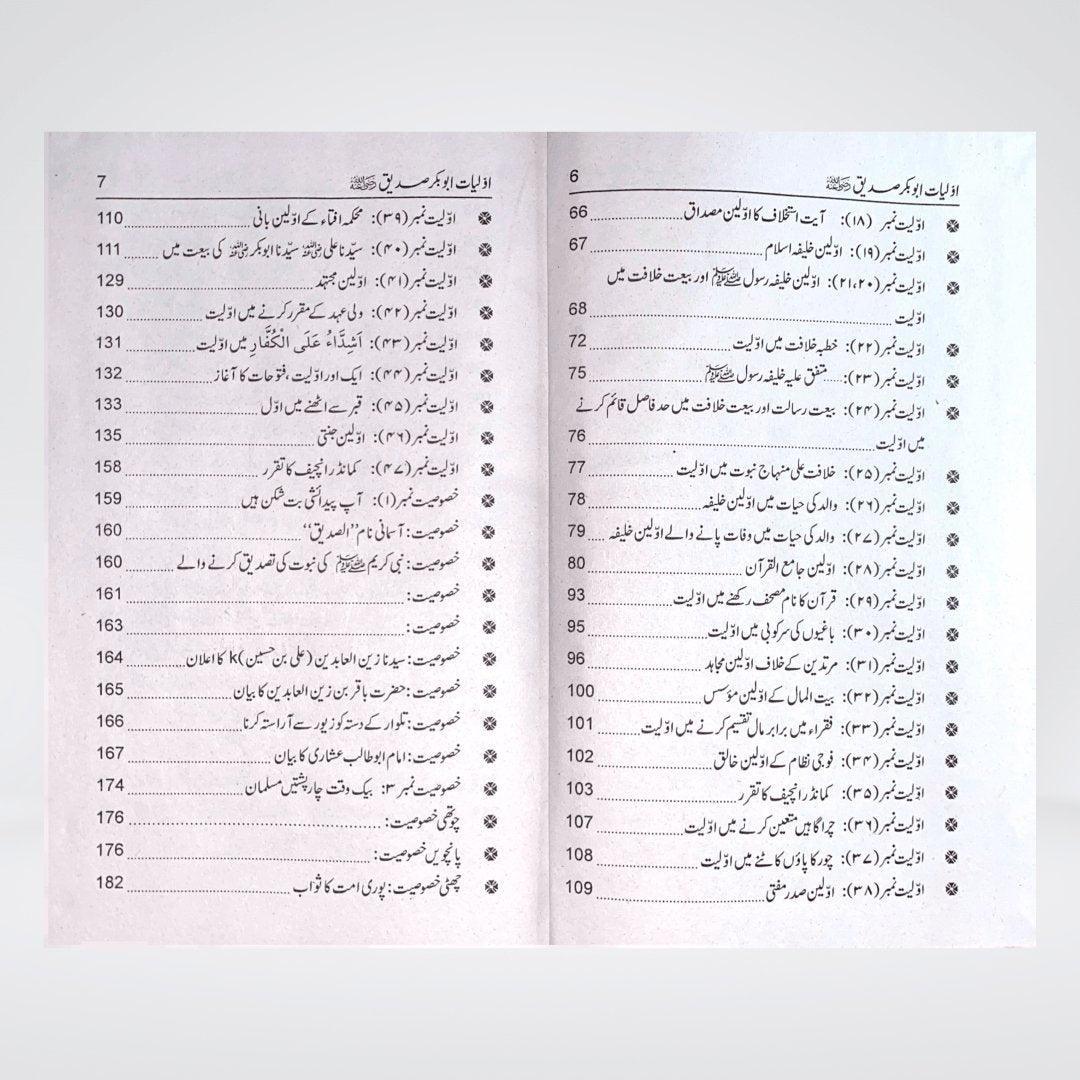 اوّلیات ابوبکر صدیق رضی اللہ عنہ 6
اوّلیت نمبر (۱۸): آیت استخلاف کا اوّلین مصداق 66
اوّلیت نمبر (۱۹): اوّلین خلیفہ اسلام 67
اوّلیت نمبر (۲۱،۲۰): اوّلین خلیفہ رسول ﷺ اور بیعت خلافت میں
اوّلیت 68
اوّلیت نمبر (۲۲): خطبہ خلافت میں اوّلیت 72
اوّلیت نمبر (۲۳): ..... متفق علیہ خلیفہ رسول ﷺ 75
اوّلیت نمبر (۲۴): بیعت رسالت اور بیعت خلافت میں حد فاصل قائم کرنے
میں اوّلیت 76
اوّلیت نمبر (۲۵): خلافت علی منہاج نبوت میں اوّلیت 77
اوّلیت نمبر (۲۶): والد کی حیات میں اوّلین خلیفہ 78
اوّلیت نمبر (۲۷): والد کی حیات میں وفات پانے والے اوّلین خلیفہ 79
اوّلیت نمبر (۲۸): اوّلین جامع القرآن 80
اوّلیت نمبر (۲۹): قرآن کا نام مصحف رکھنے میں اوّلیت 93
اوّلیت نمبر (۳۰): باغیوں کی سرکوبی میں اوّلیت 95
اوّلیت نمبر (۳۱): مرتدین کے خلاف اوّلین مجاہد 96
اوّلیت نمبر (۳۲): بیت المال کے اوّلین مؤسس 100
اوّلیت نمبر (۳۳): فقراء میں برابر مال تقسیم کرنے میں اوّلیت 101
اوّلیت نمبر (۳۴): فوجی نظام کے اوّلین خالق 102
اوّلیت نمبر (۳۵): کمانڈر انچیف کا تقرر 103
اوّلیت نمبر (۳۶): چراگاہیں متعین کرنے میں اوّلیت 107
اوّلیت نمبر (۳۷): چور کا پاؤں کاٹنے میں اوّلیت 108
اوّلیت نمبر (۳۸): اوّلین صدر مفتی 109
اوّلیات ابوبکر صدیق رضی اللہ عنہ 7
اوّلیت نمبر (۳۹): محکمہ افتاء کے اوّلین بانی 110
اوّلیت نمبر (۴۰): سیّدنا علی رضی اللہ عنہ سیّدنا ابوبکر رضی اللہ عنہ کی بیعت میں 111
اوّلیت نمبر (۴۱): اوّلین مجتہد 129
اوّلیت نمبر (۴۲): ولی عہد کے مقرر کرنے میں اوّلیت 130
اوّلیت نمبر (۴۳): اَشِدَّاءُ عَلَى الْكُفَّارِ میں اوّلیت 131
اوّلیت نمبر (۴۴): ایک اور اوّلیت، فتوحات کا آغاز 132
اوّلیت نمبر (۴۵): قبر سے اٹھنے میں اوّل 133
اوّلیت نمبر (۴۶): اوّلین جنتی 135
اوّلیت نمبر (۴۷): کمانڈر انچیف کا تقرر 158
خصوصیت نمبر (۱): آپ پیدائشی بت شکن ہیں 159
خصوصیت: آسمانی نام ”الصدیق“ 160
خصوصیت: نبی کریم ﷺ کی نبوت کی تصدیق کرنے والے 160
خصوصیت: 161
خصوصیت: 163
خصوصیت: سیدنا زین العابدین (علی بن حسین) k کا اعلان 164
خصوصیت: حضرت باقر بن زین العابدین کا بیان 165
خصوصیت: تلوار کے دستہ کو زیور سے آراستہ کرنا 166
خصوصیت: امام ابوطالب عشاری کا بیان 167
خصوصیت نمبر ۳: بیک وقت چار پشتیں مسلمان 174
چوتھی خصوصیت: 176
پانچویں خصوصیت: 176
چھٹی خصوصیت: پوری امت کا ثواب 182